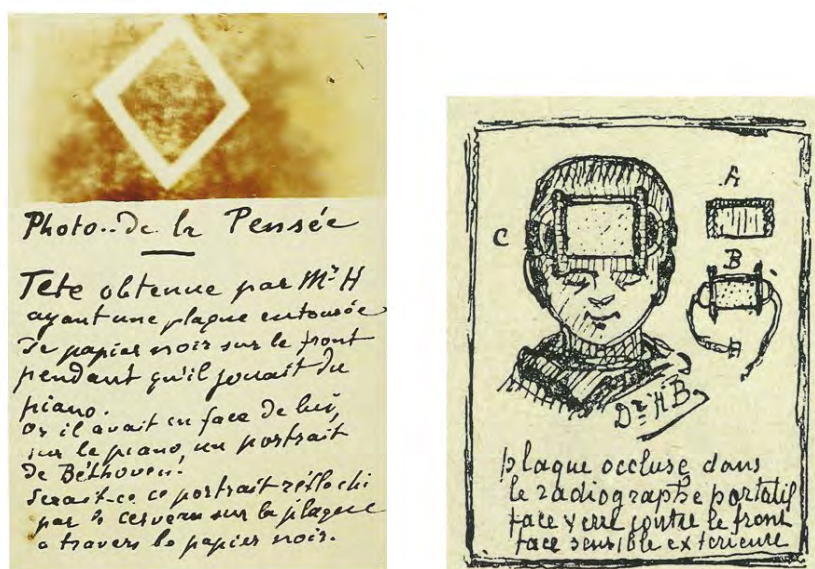 Photo.. de la Pensée
Tete obtenue par Mr H
ayant une plaque entourée
de papier noir sur le front
pendant qu'il jouait du
piano.
Or il avait en face de lui,
sur le piano, un portrait
de Béthoven.
Serait-ce ce portrait réflechi
par le cerveau sur la plaque
a travers le papier noir.
A
C
B
Dr HB
plaque occluse dans
le radiographe portatif
face verre contre le front
face sensible exterieure